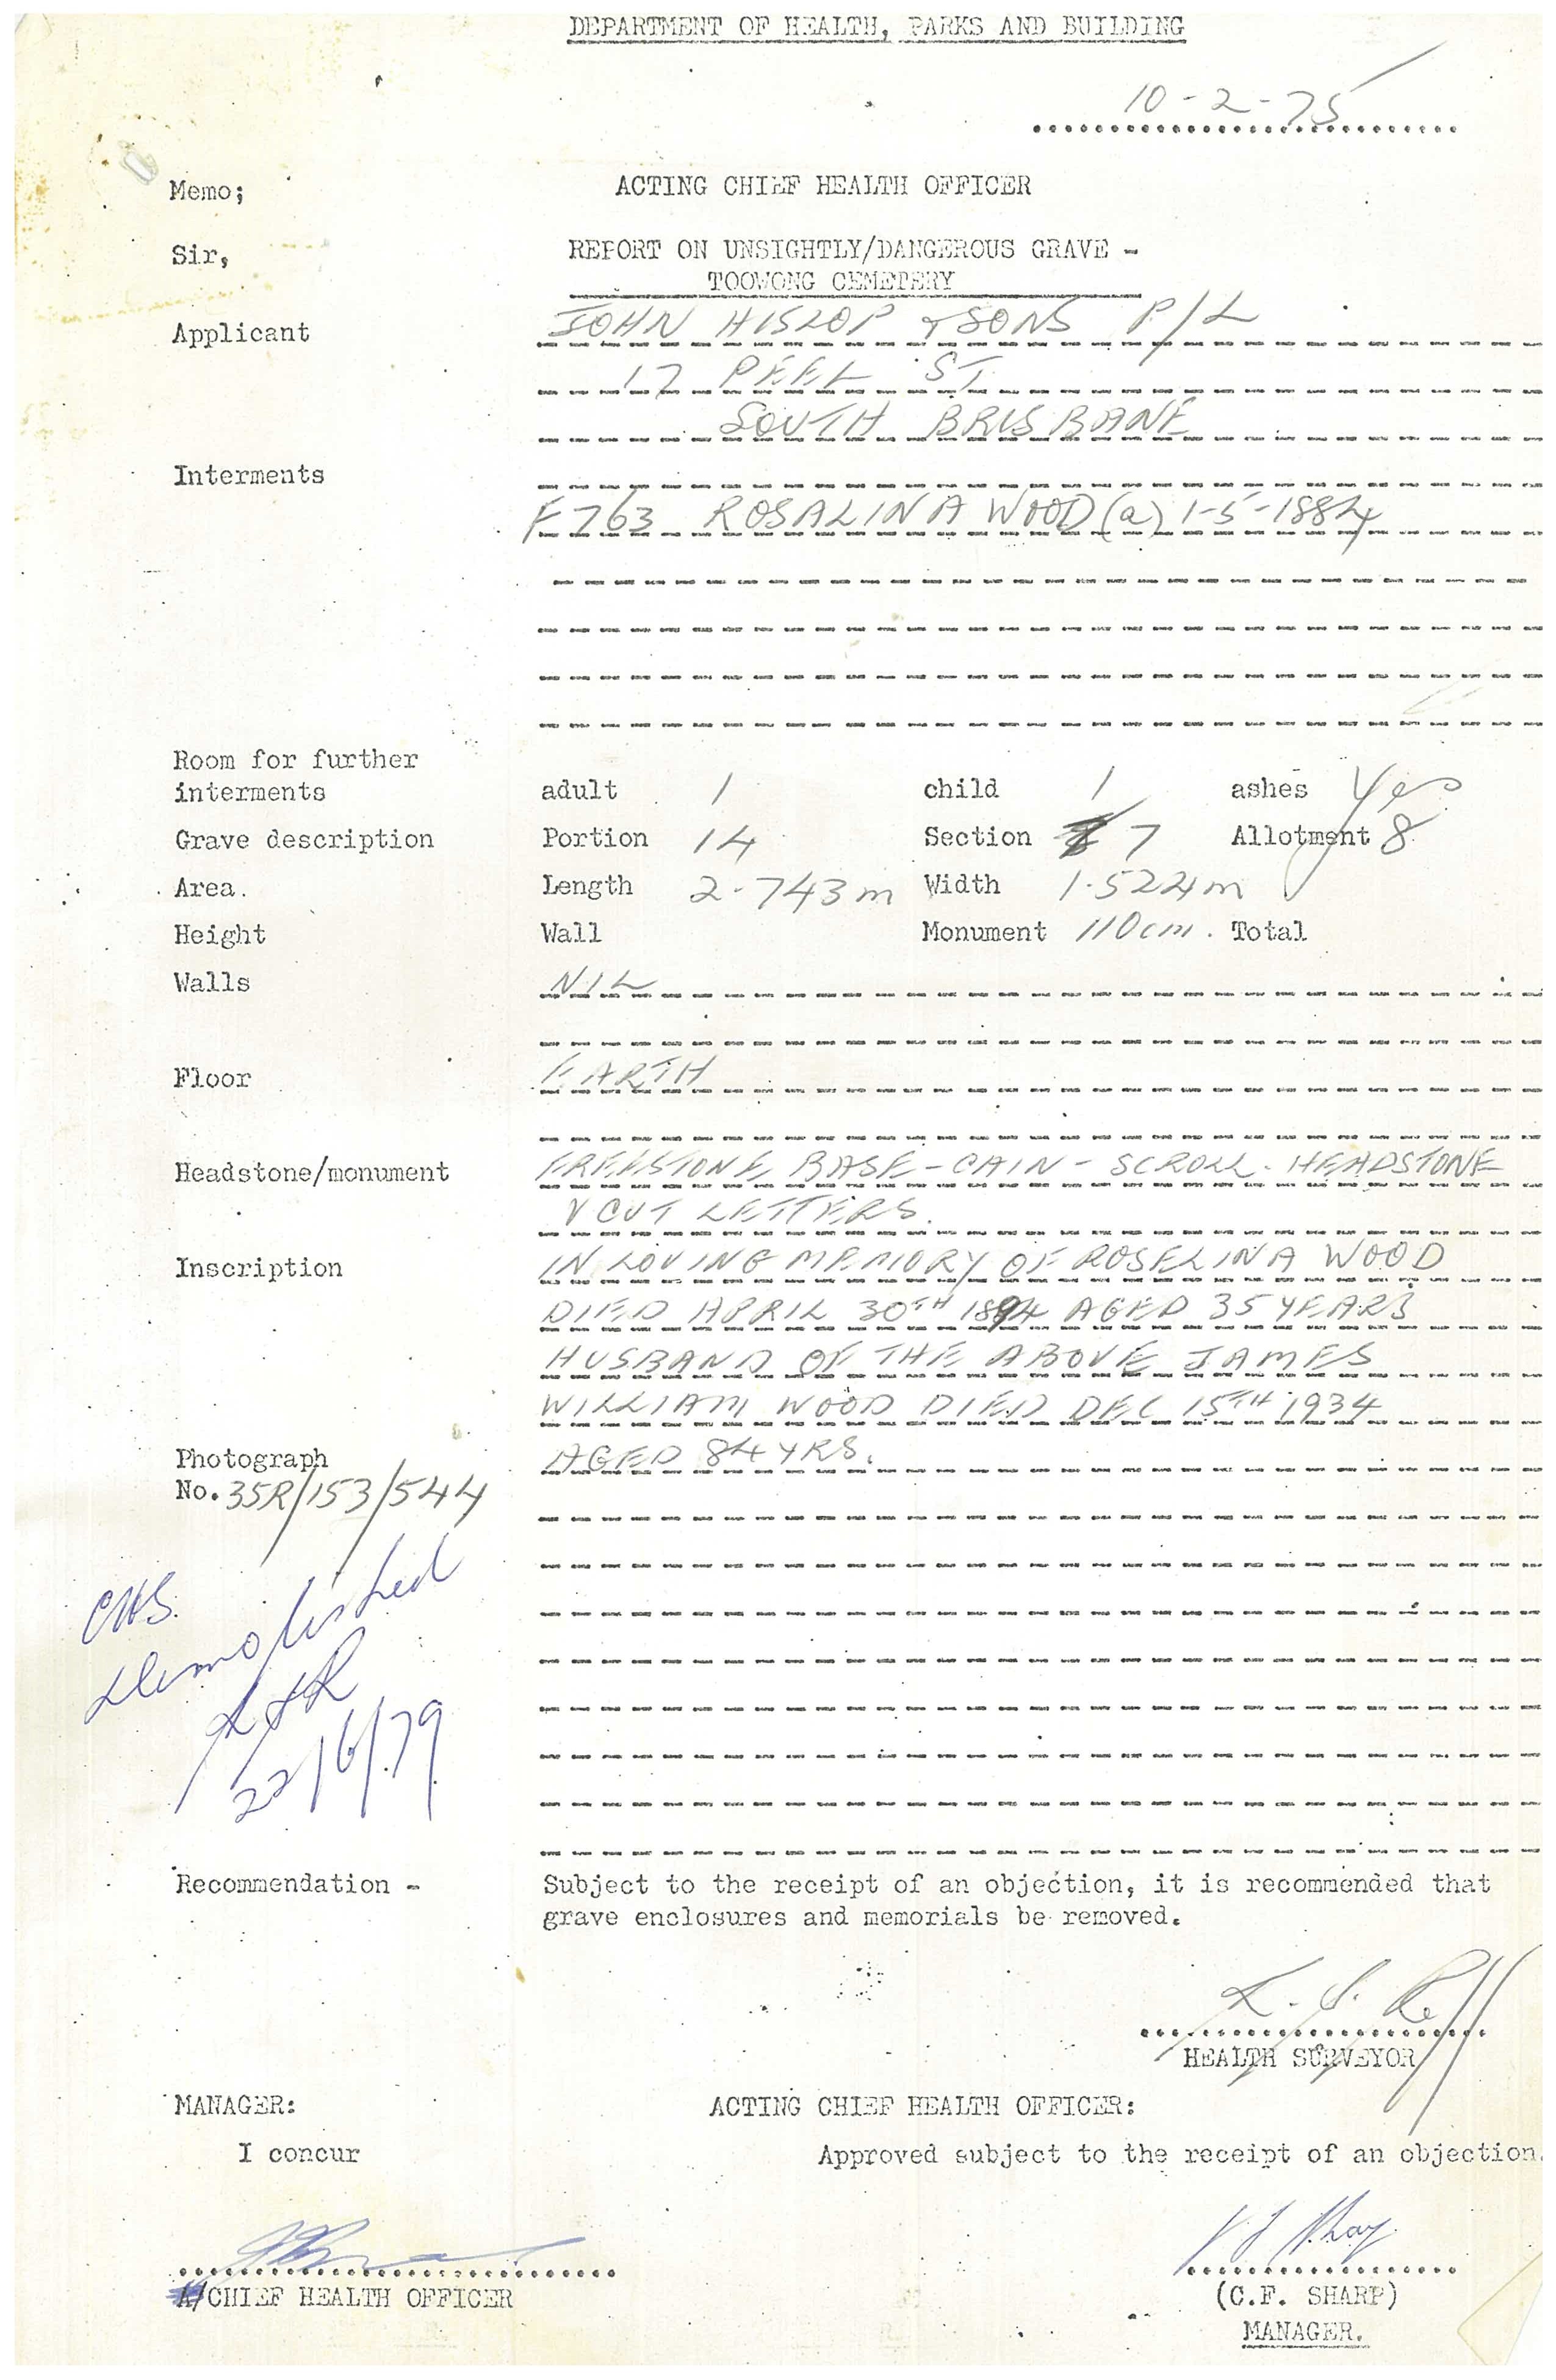 DEPARTMENT OF HEALTH, PARKS AND BUILDING
10-2-75
Memo; ACTING CHIEF HEALTH OFFICER
Sir, REPORT ON UNSIGHTLY/DANGEROUS GRAVE -
TOOWONG CEMETERY
Applicant JOHN HISLOP & SONS P/L
17 PEEL ST.
SOUTH BRISBANE
Interments
F763 ROSALINA WOOD (a) 1-5-1884
Room for further
interments adult 1 child 1 ashes Yes
Grave description Portion 14 Section 7 Allotment 8
Area. Length 2.743m Width 1.524m
Height Wall Monument 110cm. Total
Walls NIL
Floor EARTH
Headstone/monument FREESTONE BASE - CAIN - SCROLL - HEADSTONE
V CUT LETTERS.
Inscription IN LOVING MEMORY OF ROSELINA WOOD
DIED APRIL 30TH 1894 AGED 35 YEARS
HUSBAND OF THE ABOVE JAMES
WILLIAM WOOD DIED DEC 15TH 1934
Photograph AGED 84 YRS.
No. 35R/153/544
CHS.
Demolished
22/6/79
Recommendation - Subject to the receipt of an objection, it is recommended that
grave enclosures and memorials be removed.
HEALTH SURVEYOR
MANAGER: ACTING CHIEF HEALTH OFFICER:
I concur Approved subject to the receipt of an objection.
A/CHIEF HEALTH OFFICER (C.F. SHARP)
MANAGER.